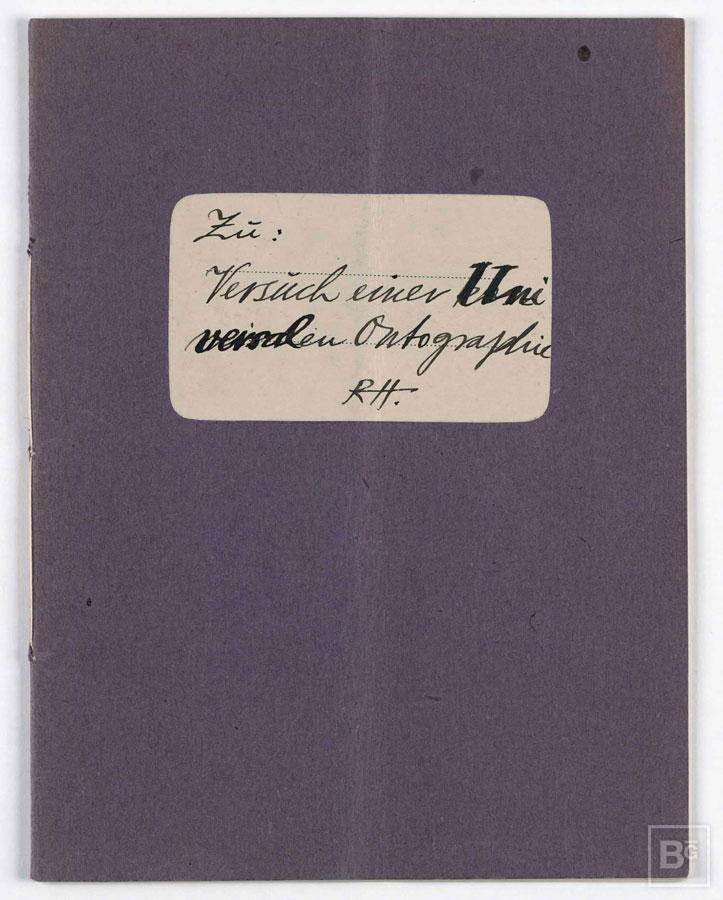 Zu:
Versuch einer Uni
versalen Ontographie
RH.
BG